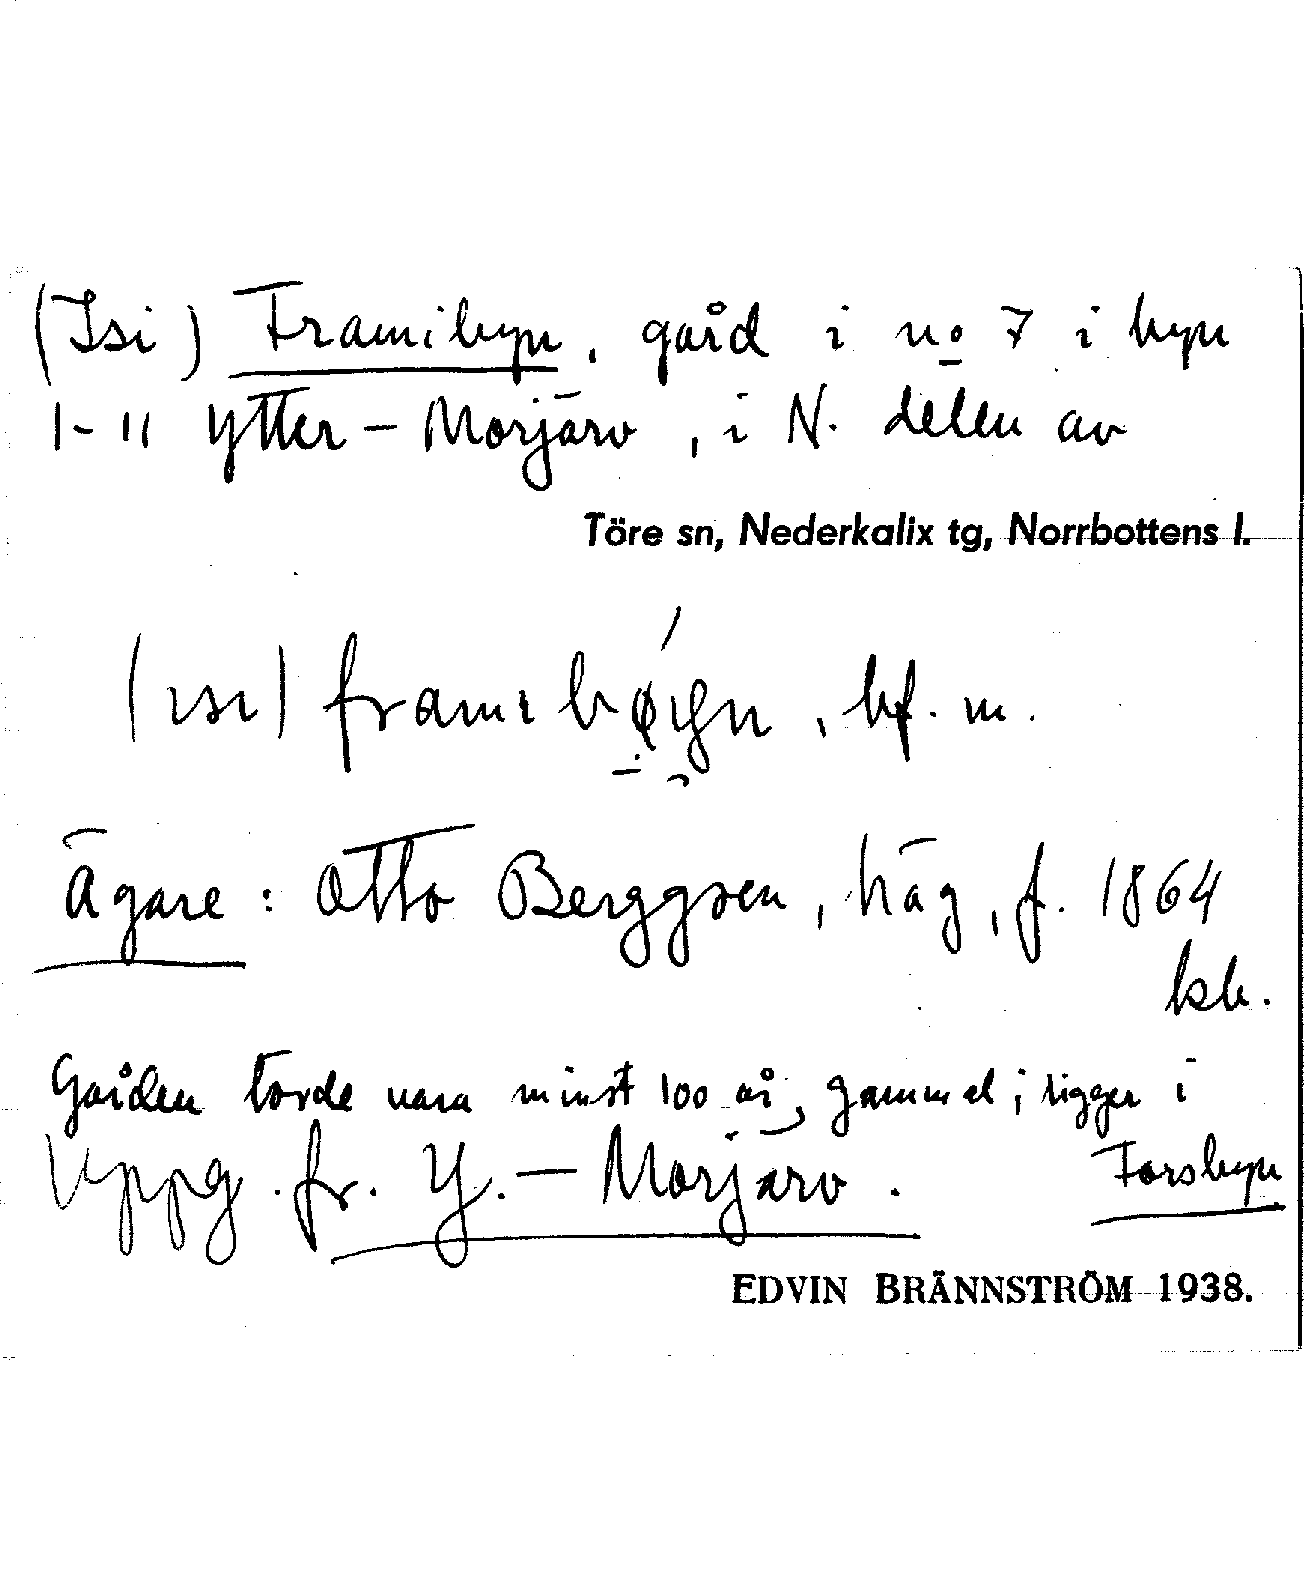 (Isi) Framibyn, gård i no 7 i byn
1-11 Ytter-Morjärv, i N. delen av
Töre sn, Nederkalix tg, Norrbottens l.
(ısı) bf. m.
Ägare: Otto Berggren, häg, f. 1864
kb.
Gården torde vara minst 100 år gammal; ligger i
Forsbyn
Uppg. fr. Y.-Morjärv.
EDVIN BRÄNNSTRÖM 1938.